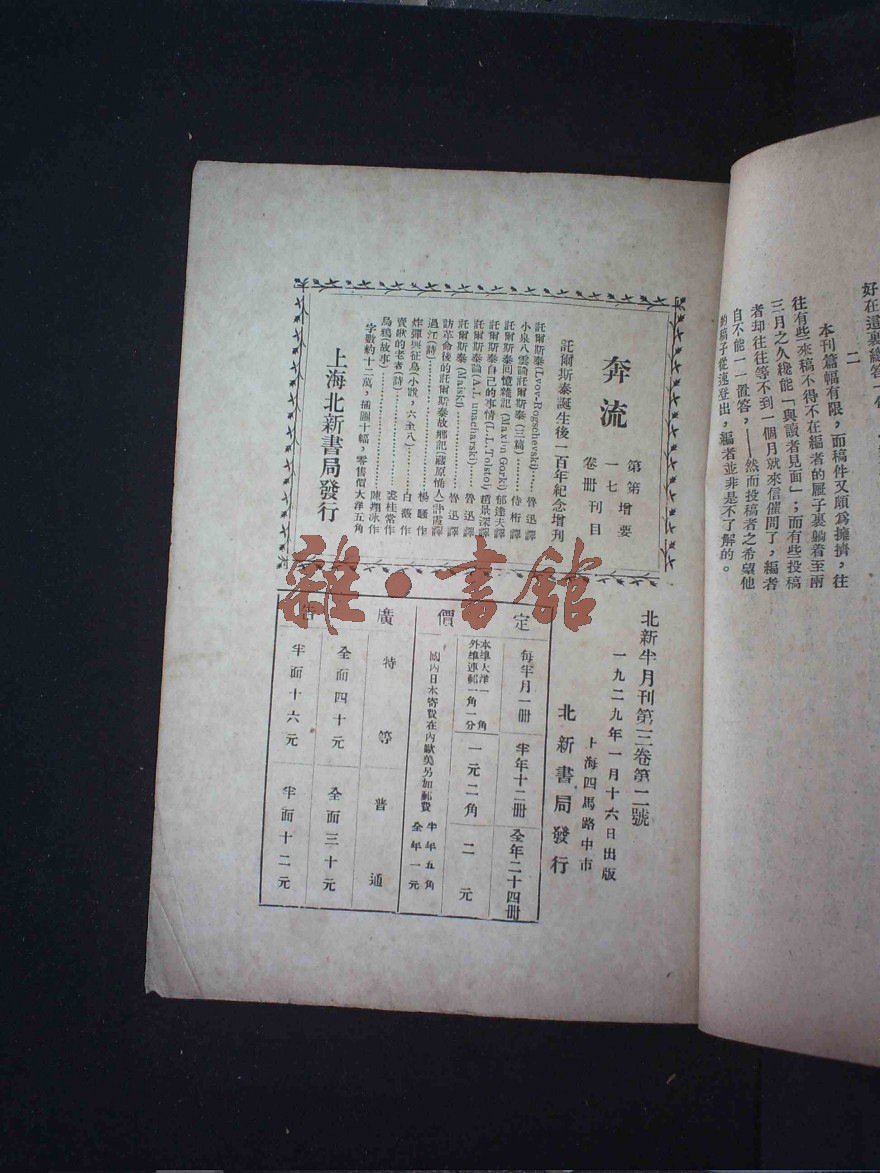 好在這裏總答一句
二
本刊篇幅有限，而稿件又頗爲擁擠，往
往有些來稿不得不在編者的屜子裏躺着至兩
三月之久纔能「與讀者見面」；而有些投稿
者却往往等不到一個月就來信催問了，編者
自不能一一置答，——然而投稿者之希望他
的稿子從速登出，編者並非是不了解的。
奔流
第一卷
第七冊
增刊
要目
託爾斯泰誕生後一百年紀念增刊
託爾斯泰(Lvov-Rogachevski)……魯迅譯
小泉八雲論託爾斯泰(三篇)……侍桁譯
託爾斯泰回憶雜記(Maxim Gorki)郁達夫譯
託爾斯泰自己的事情(L.L.Tolstoi)趙景深譯
託爾斯泰論(A.Lunacharski)……魯迅譯
託爾斯泰(Maiski)……魯迅譯
訪革命後的託爾斯泰故鄉記(藏原惟人)許霞譯
過江(詩)……楊騷作
炸彈與征鳥(小說，六至八)……白薇作
賣歌的老者(詩)……裘柱常作
烏鴉(故事)……陳翔冰作
字數約十二萬，插圖十幅，零售價大洋五角
上海北新書局發行
北新半月刊第三卷第二號
一九二九年一月十六日出版
上海四馬路中市
北新書局發行
定價
每半月一冊
半年十二冊
全年二十四冊
本埠大洋一角
外埠連郵一角一分
一元二角
二元
國內日本寄費在內歐美另加郵費
半年五角
全年一元
廣告
特等
普通
全面四十元
全面三十元
半面十六元
半面十二元
雜·書館